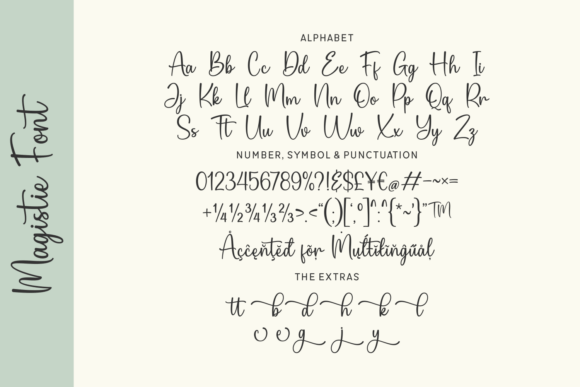 Magistie Font
ALPHABET
Aa Bb Cc Dd Ee Ff Gg Hh Ii
Jj Kk Ll Mm Nn Oo Pp Qq Rr
Ss Tt Uu Vv Ww Xx Yy Zz
NUMBER, SYMBOL & PUNCTUATION
0123456789%?!&$£¥€@#-~×=
+¼½¾⅓⅔>.<“(;)[‘,º]^:^{*~’}”™
THE EXTRAS
tt b d h k l
c e g j y